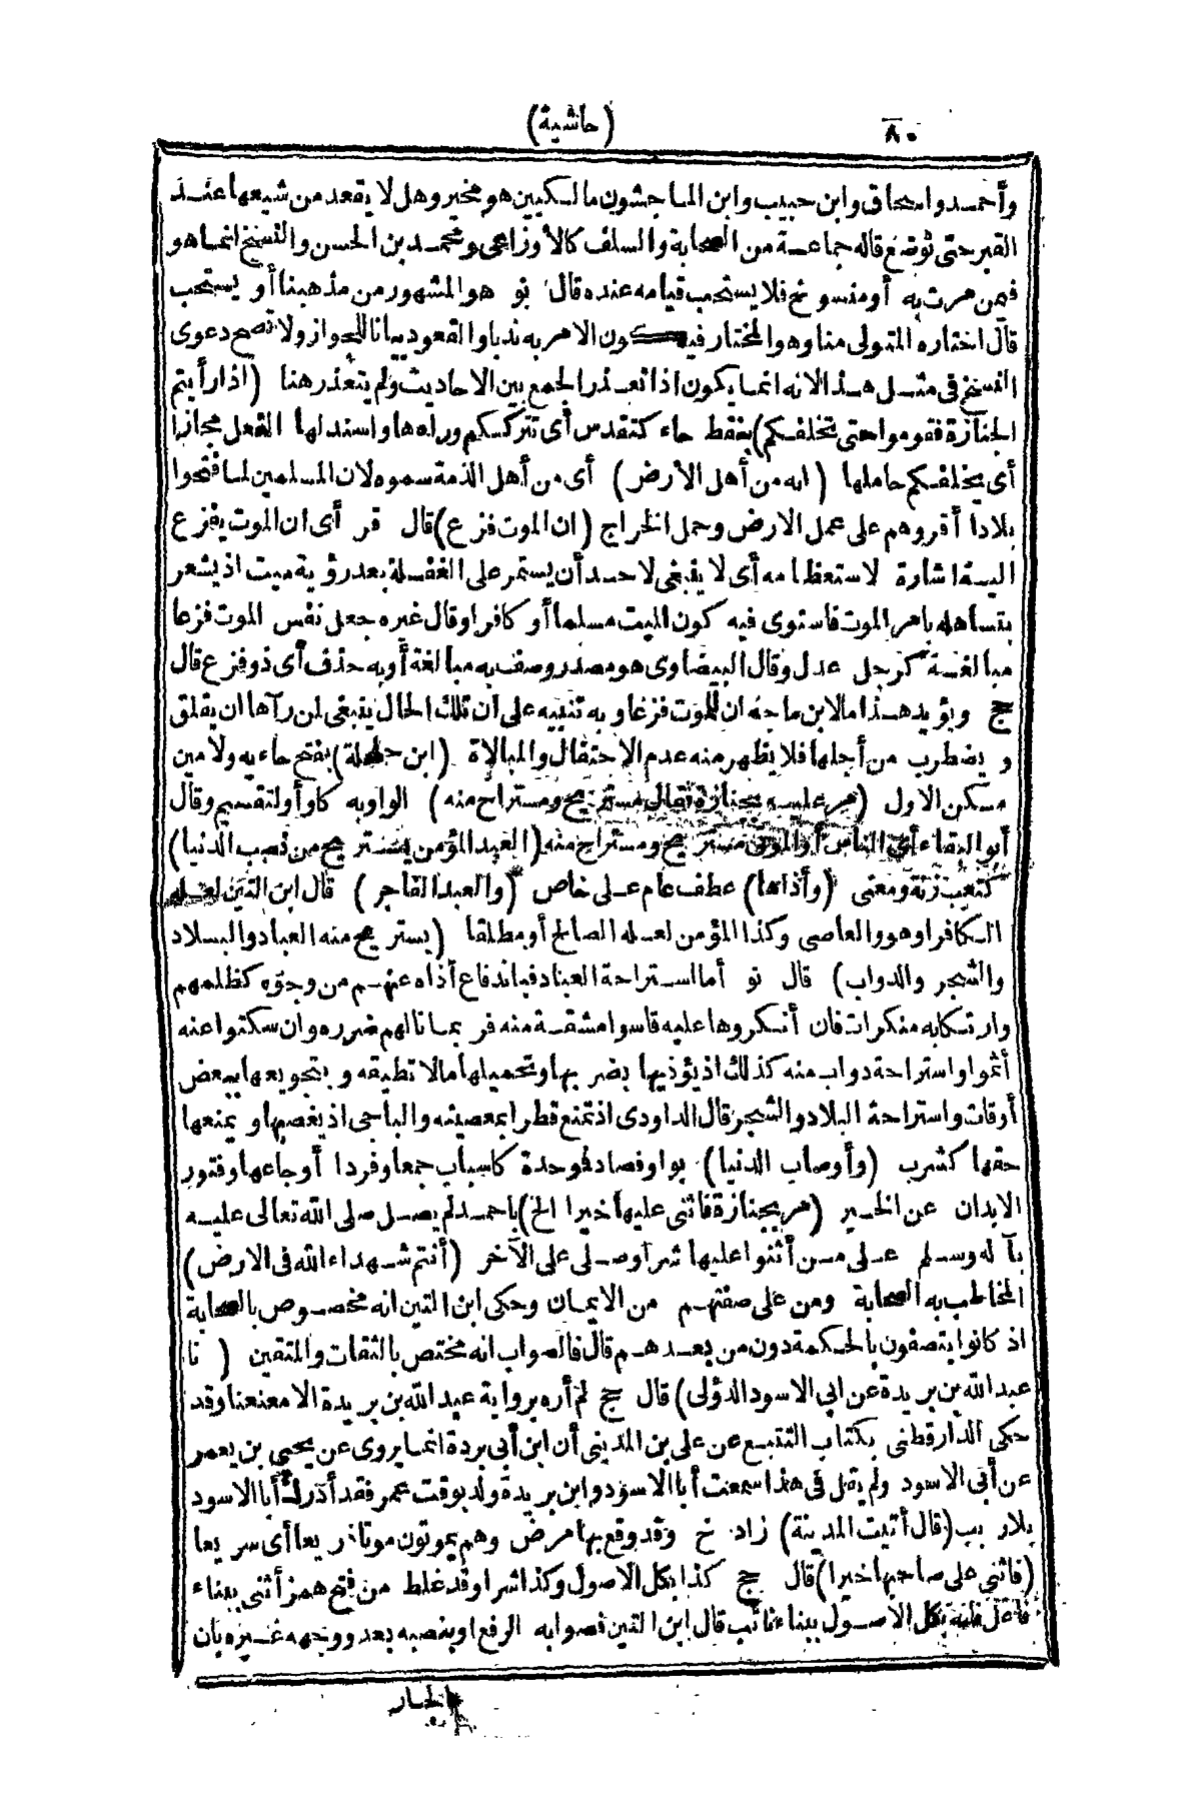 ٨٠
(حاشية)
وأحمد واسحاق وابن حبيب وابن الماجشون مالكيين هو مخير وهل لا يقعد من شيعها عند
القبر حتى توضع قاله جماعة من الصحابة والسلف كالأوزاعى ومحمد بن الحسن والنسخ انما هو
فيمن مرت به أو منسوخ فلا يستحب قيامه عنده قال نو هو المشهور من مذهبنا أو يستحب
قال اختاره المتولى منا وهو المختار فيكون الامر به ندبا والقعود بيانا للجواز ولا تصح دعوى
النسخ فى مثل هذا لانه انما يكون اذا تعذر الجمع بين الاحاديث ولم يتعذر هنا (اذا رأيتم
الجنازة فقوموا حتى تخلفكم) بنقط حاء كتقدس أى تترككم وراءها واسند لها الفعل مجازا
أى يخلفكم حاملها (انه من أهل الأرض) أى من أهل الذمة سموه لان المسلمين لما فتحوا
بلادا أقروهم على عمل الارض وحمل الخراج (ان الموت فزع) قال قر أى ان الموت يفزع
اليه اشارة لاستعظامه أى لا ينبغى لاحد أن يستمر على الغفلة بعد رؤية ميت اذ يشعر
بتساهله بامر الموت فاستوى فيه كون الميت مسلما أو كافرا وقال غيره جعل نفس الموت فزعا
مبالغة كرجل عدل وقال البيضاوى هو مصدر وصف به مبالغة أو به حذف أى ذو فزع قال
حج ويؤيد هذا ما لابن ماجه ان للموت فزعا وبه تنبيه على ان تلك الحال ينبغى لمن رآها ان يقلق
ويضطرب من أجلها فلا يظهر منه عدم الاحتفال والمبالاة (ابن حلحلة) بفتح حاءيه ولامين
مسكن الاول (مر عليه بجنازة فقال مستريح ومستراح منه) الواو به كاو أو لتقسيم وقال
أبو البقاء أى الناس أو الموتى مستريح ومستراح منه (العبد المؤمن يستريح من نصب الدنيا)
كتعب زنة ومعنى (وأذاها) عطف عام على خاص (والعبد الفاجر) قال ابن التين لعله
الكافر او هو والعاصى وكذا المؤمن لعله الصالح أو مطلقا (يستريح منه العباد والبلاد
والشجر والدواب) قال نو أما استراحة العباد فباندفاع أذاه عنهم من وجوه كظلمهم
وارتكابه منكرات فان أنكروها عليه قاسوا مشقة منه فربما نالهم ضرره وان سكتوا عنه
أثموا واستراحة دواب منه كذلك اذ يؤذيها بضربها وتحميلها مالا تطيقه وبتجويعها ببعض
أوقات واستراحة البلاد والشجر قال الداودى اذ تمنع قطرا بمعصيته والباجى اذ يغصبها ويمنعها
حقها كشرب (وأوصاب الدنيا) بواو فصاد فوحدة كاسباب جمعا وفردا أوجاعها وفتور
الابدان عن الخير (مر بجنازة فاثنى عليها خيرا الخ) باحمد لم يصل صلى الله تعالى عليه
بآله وسلم على من أثنوا عليها شرا وصلى على الآخر (أنتم شهداء الله فى الارض)
المخاطب به الصحابة ومن على صفتهم من الايمان وحكى ابن التين انه مخصوص بالصحابة
اذ كانوا يتصفون بالحكمة دون من بعدهم قال فالصواب انه مختص بالثقات والمتقين (نا
عبد الله بن بريدة عن ابى الاسود الدؤلى) قال حج لم أره برواية عبد الله بن بريدة الا معنعنا وقد
حكى الدارقطنى بكتاب التتبع عن على بن المدينى أن ابن أبى بردة انما يروى عن يحيى بن يعمر
عن أبى الاسود ولم يقل فى هذا سمعت أبا الاسود وابن بريدة ولد بوقت عمر فقد أدرك أبا الاسود
بلا ريب (قال أتيت المدينة) زاد خ وقد وقع بها مرض وهم يموتون موتا ذريعا أى سريعا
(فاثنى على صاحبها خيرا) قال حج كذا بكل الاصول وكذا شرا وقد غلط من فتح همز أثنى ببناء
فاعل فانه بكل الاصول ببناء نائب قال ابن التين فصوابه الرفع او بنصبه بعد ووجهه غيره بان
الجار